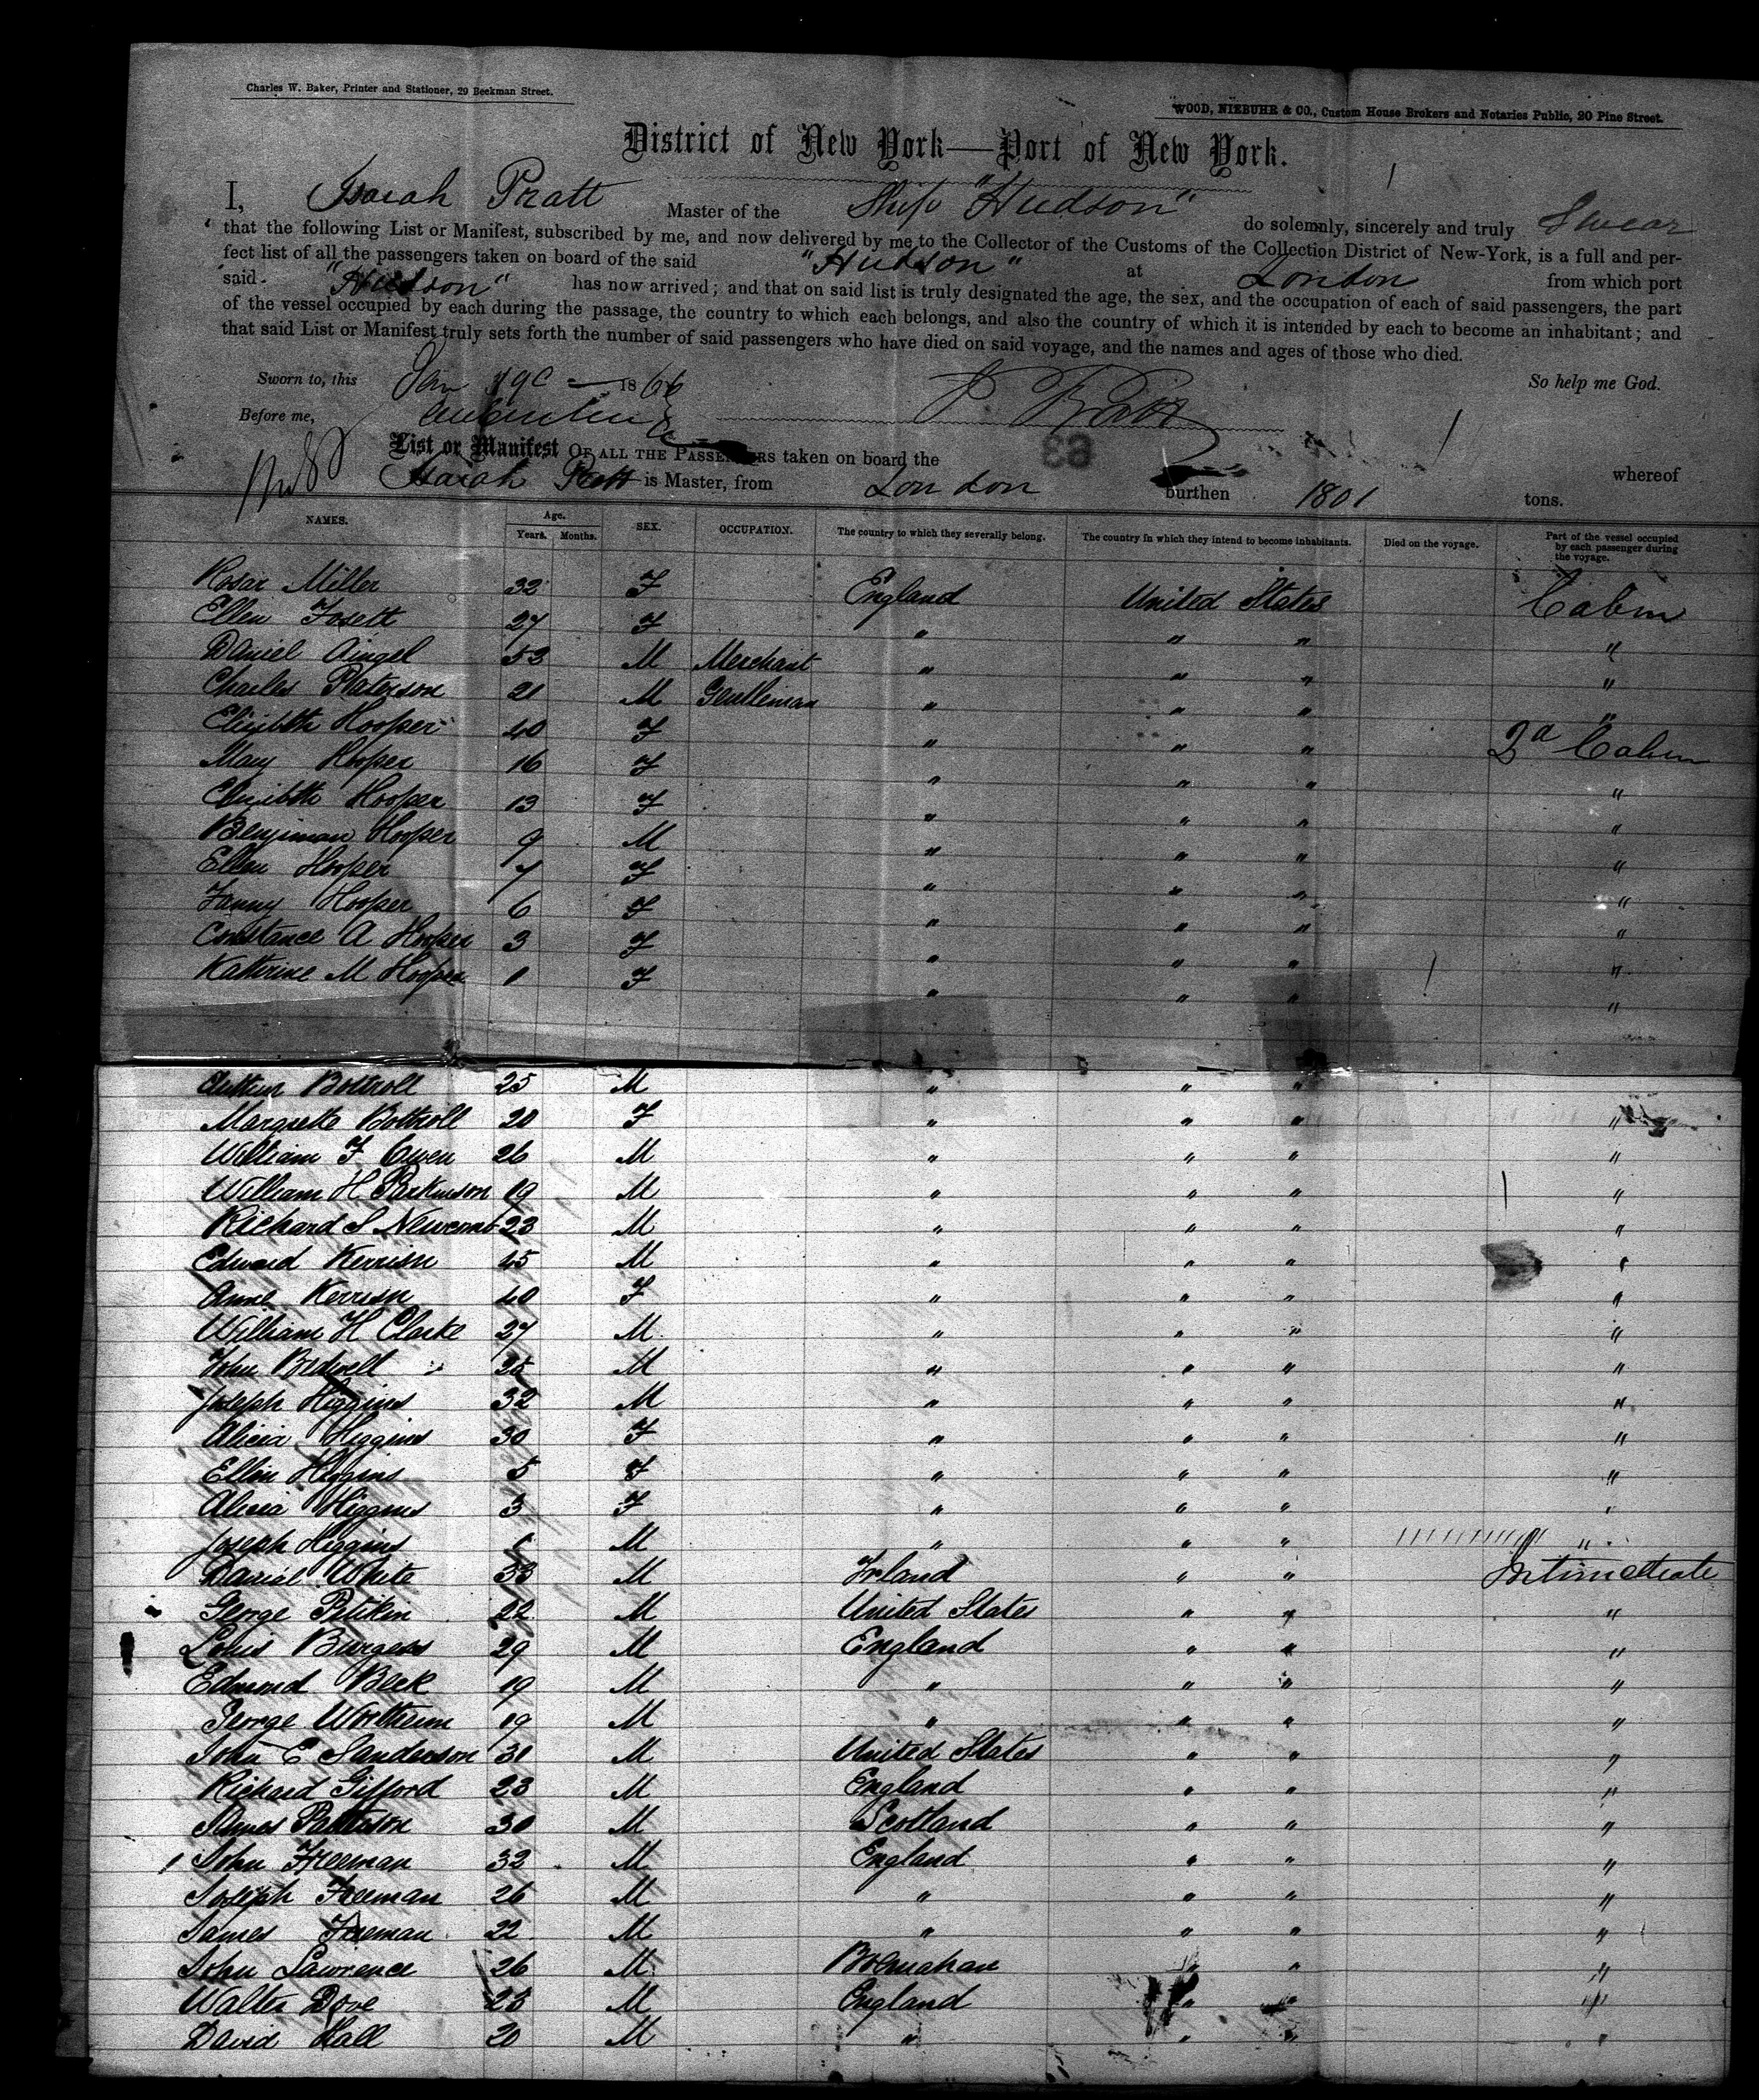 Charles W. Baker, Printer and Stationer, 29 Beekman Street.
WOOD, NIEBUHR & CO., Custom House Brokers and Notaries Public, 20 Pine Street.
District of New York—Port of New York.
I, Isaiah Pratt Master of the Ship "Hudson" do solemnly, sincerely and truly Swear
that the following List or Manifest, subscribed by me, and now delivered by me to the Collector of the Customs of the Collection District of New-York, is a full and per-
fect list of all the passengers taken on board of the said "Hudson" at London from which port
said "Hudson" has now arrived; and that on said list is truly designated the age, the sex, and the occupation of each of said passengers, the part
of the vessel occupied by each during the passage, the country to which each belongs, and also the country of which it is intended by each to become an inhabitant; and
that said List or Manifest truly sets forth the number of said passengers who have died on said voyage, and the names and ages of those who died.
Sworn to, this Jan 18 66 So help me God.
Before me, I Pratt
List or Manifest OF ALL THE PASSENGERS taken on board the 63 whereof
Isaiah Pratt is Master, from London burthen 1801 tons.
NAMES. Age. Years. Months. SEX. OCCUPATION. The country to which they severally belong. The country in which they intend to become inhabitants. Died on the voyage. Part of the vessel occupied by each passenger during the voyage.
Rosar Miller 32 F England United States Cabin
Ellen Fosett 27 F " " " "
Daniel Aingel 53 M Merchant " " " "
Charles Paterson 21 M Gentleman " " " "
Elizibth Hooper 40 F " " " 2d Cabin
Mary Hooper 16 F " " " "
Elizibth Hooper 13 F " " " "
Benjiman Hooper 9 M " " " "
Ellen Hooper 7 F " " " "
Fanny Hooper 6 F " " " "
Constance A Hooper 3 F " " " "
Kathrine M Hooper 1 F " " " "
Bottroll 25 M " " "
Margrette Bottroll 20 F " " " "
William F Owen 26 M " " " "
William H Parkinson 19 M " " " "
Richard S Newcomb 23 M " " " "
Edward Kerrisn 45 M " " " "
Anne Kerrisn 40 F " " " "
William H Clarke 27 M " " " "
John Bidwell 25 M " " " "
Joseph Higgins 32 M " " " "
Alicia Higgins 30 F " " " "
Ellen Higgins 5 F " " " "
Alicia Higgins 3 F " " " "
Joseph Higgins M " " " "
Daniel White 33 M Irland " " Intimediate
George Pitikin 22 M United States " " "
Louis Burgess 29 M England " " "
Edmond Beck 19 M " " " "
George Wortheim 19 M " " " "
John E Sanderson 31 M United States " " "
Richard Gifford 23 M England " " "
James Patterson 30 M Scotland " " "
John Freeman 32 M England " " "
Joseph Freeman 26 M " " " "
James Freeman 22 M " " " "
John Lawrence 26 M " " "
Walter Dove 23 M England " " "
David Hall 20 M " " " "